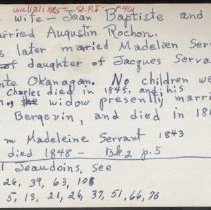 wife - Jean Baptiste and
married Augustin Rochon.
s later maried Madelien Serv
of daughter of Jacques Servan
te Okanagan. No children we
Charles died in 1845. and his
widow presently marri
Bergevin, and died in 186
m Madeleine Servant 1843
died 1848 - Bk.2 p.5
Jeaudoins, see
26, 39, 63, 108
5, 13, 21, 26, 37, 51, 66, 76